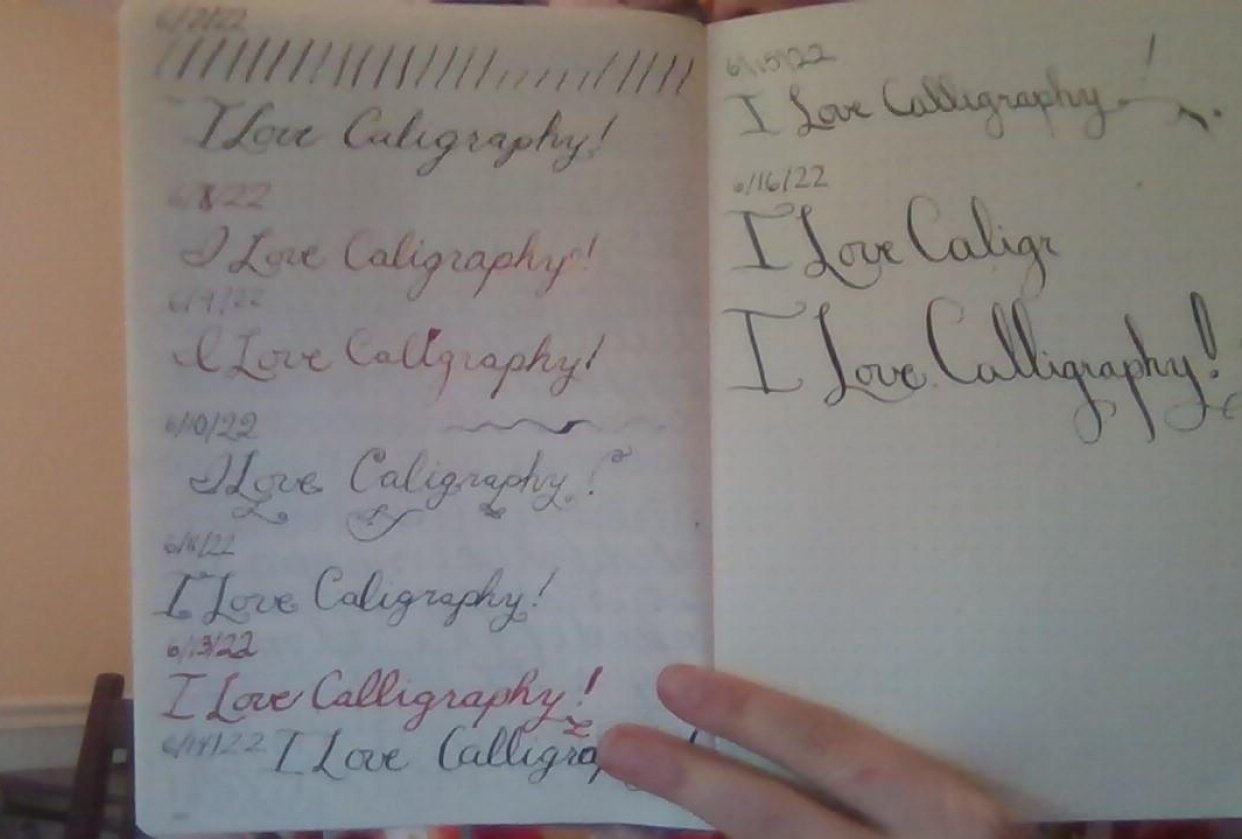 6/7/22
I Love Caligraphy!
6/8/22
I Love Caligraphy!
6/9/22
I Love Caligraphy!
6/10/22
I Love Caligraphy!
6/11/22
I Love Caligraphy!
6/13/22
I Love Calligraphy!
6/14/22 I Love Calligra
6/15/22
I Love Calligraphy!
6/16/22
I Love Caligr
I Love Calligraphy!